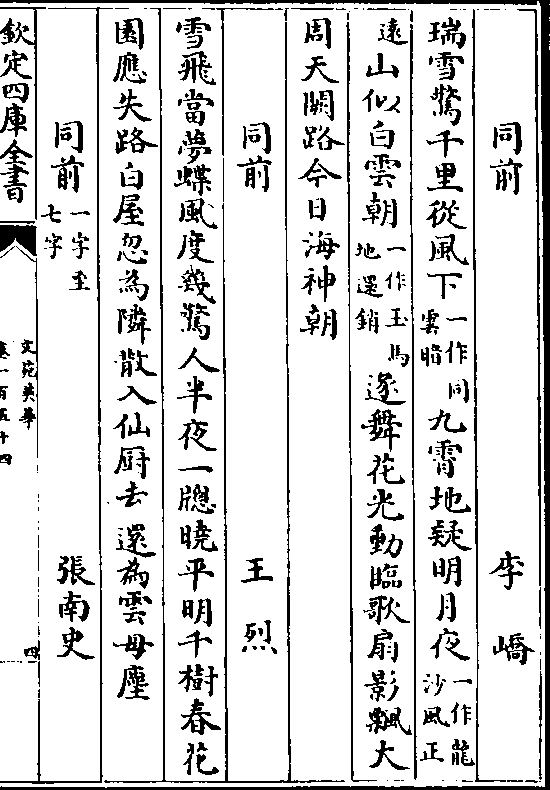 同前 李嶠
瑞雪驚千里從風下一作同雲暗九霄地疑明月夜一作龍沙風正
遠山似白雲朝一作玉馬地還銷逐舞花光動臨歌扇影飄大
周天闕路今日海神朝
同前 王烈
雪飛當夢蝶風度幾驚人半夜一牕曉平明千樹春花
園應失路白屋忽為隣散入仙厨去還為雲母塵
同前一字至七字 張南史
欽定四庫全書
文苑英華
卷一百五十四
四